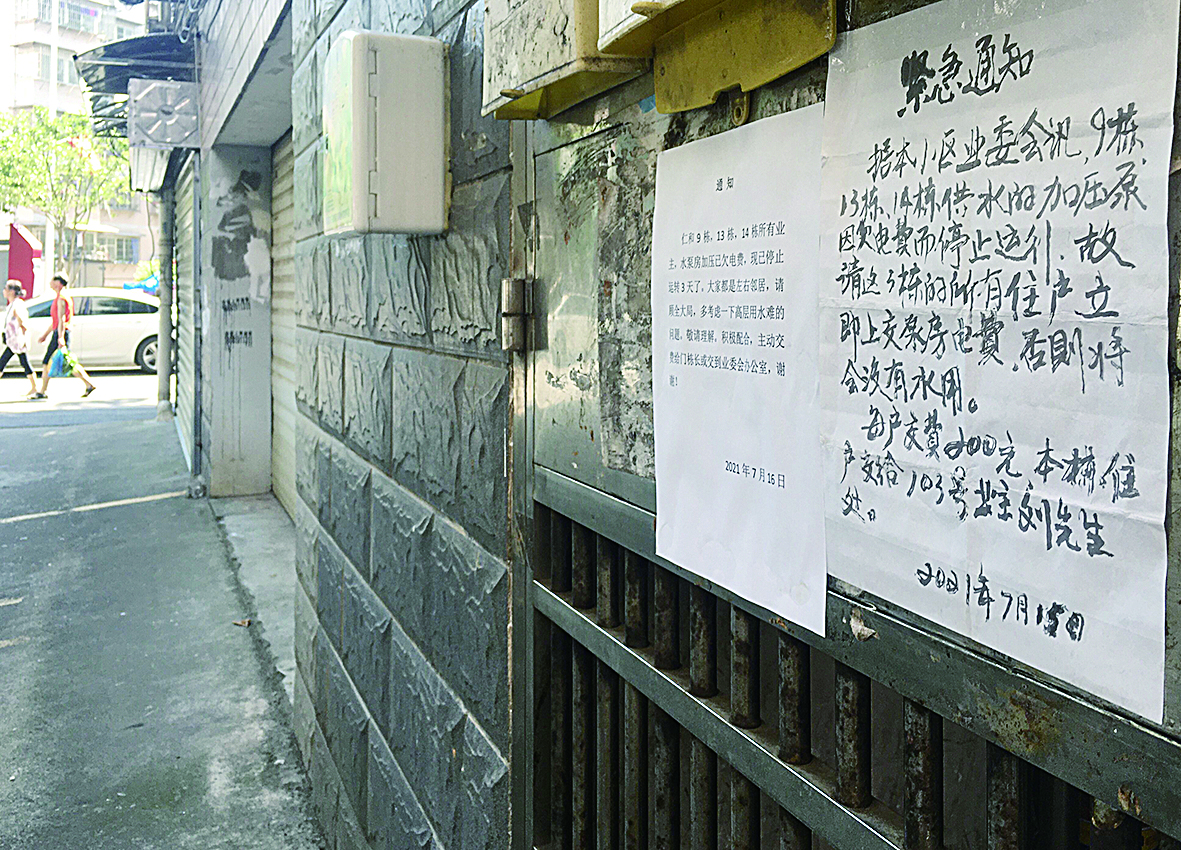 通知
仁和9栋，13栋，14栋所有业
主，水泵房加压已欠电费，现已停止
运转3天了，大家都是左右邻居，请
顾全大局，多考虑一下高层用水难的
问题，敬请理解，积极配合，主动交
费给门栋长或交到业委会办公室，谢
谢！
2021年7月16日
紧急通知
据本小区业委会讯，9栋、
13栋、14栋供水的加压泵
因欠电费而停止运行．故
请这3栋的所有住户立
即上交泵房电费，否则将
会没有水用。
每户交费200元本栋住
户交给103号业主刘先生
处。
2021年7月15日